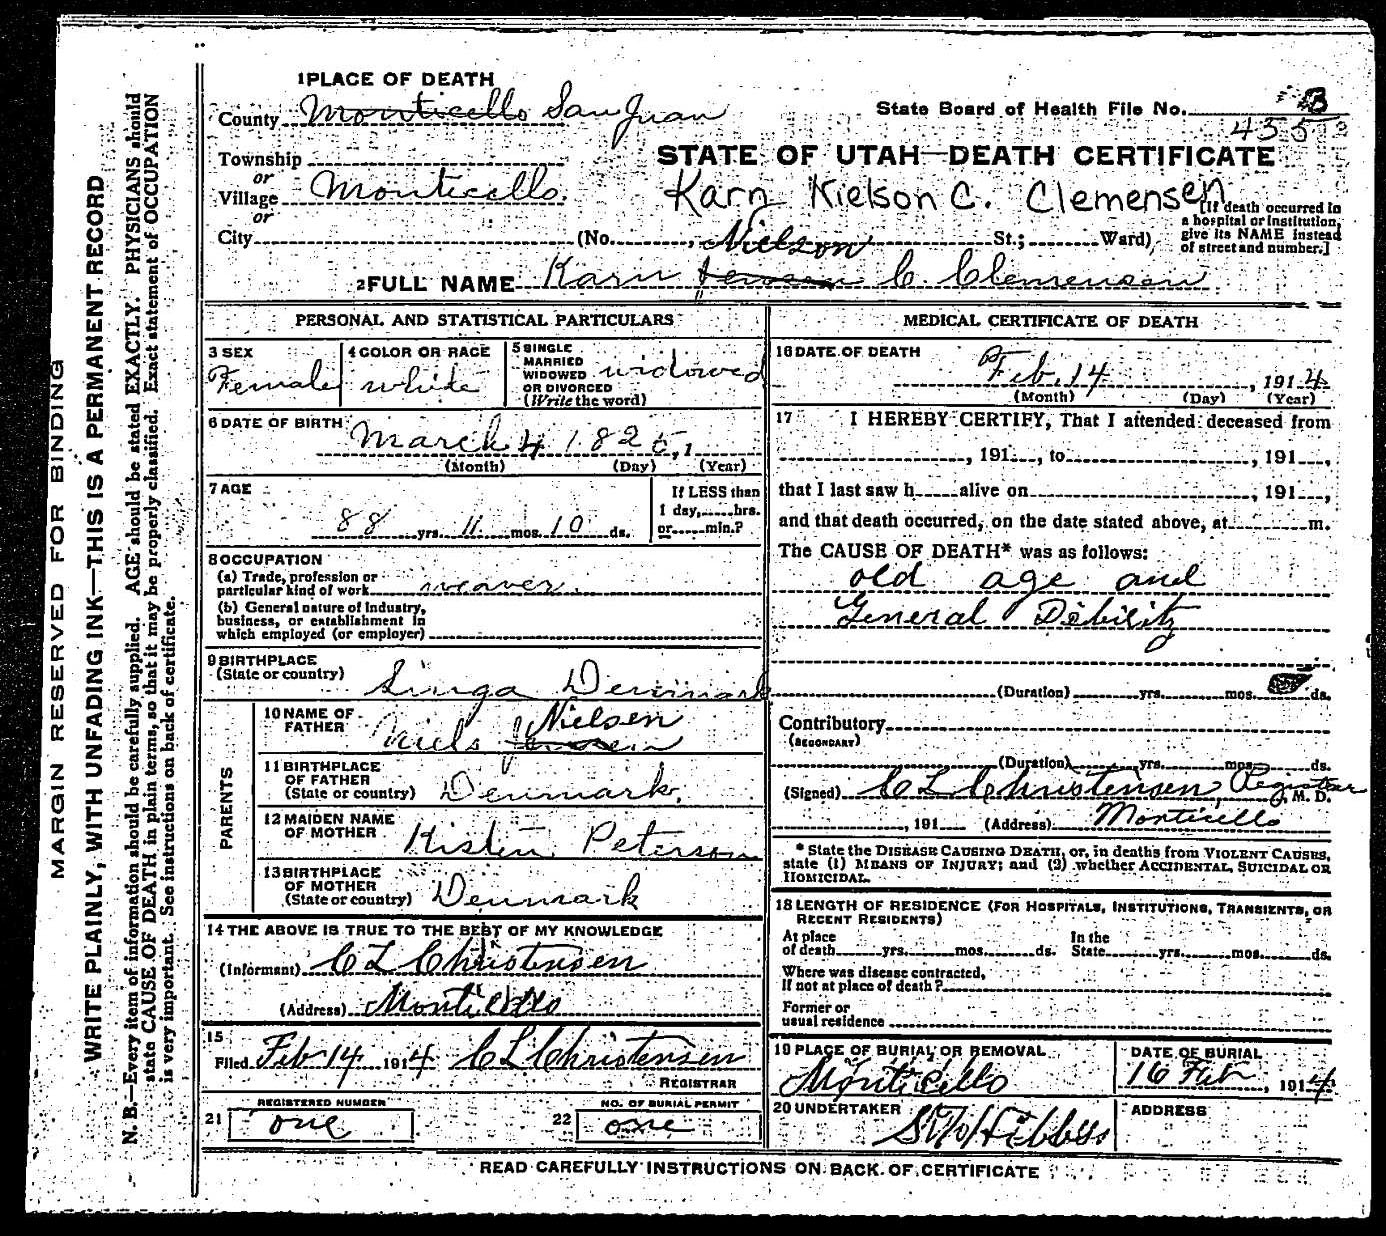 MARGIN RESERVED FOR BINDING
WRITE PLAINLY, WITH UNFADING INK—THIS IS A PERMANENT RECORD
N. B.—Every item of information should be carefully supplied. AGE should be stated EXACTLY. PHYSICIANS should
state CAUSE OF DEATH in plain terms, so that it may be properly classified. Exact statement of OCCUPATION
is very important. See instructions on back of certificate.
1 PLACE OF DEATH
County Monticello San Juan
State Board of Health File No. B
Township
STATE OF UTAH—DEATH CERTIFICATE
or
Village Monticello.
Karn Nielson C. Clemensen
or
City (No. , St.; Ward)
[If death occurred in
a hospital or institution,
give its NAME instead
of street and number.]
Nielson
2 FULL NAME Karn Jensen C Clemensen
PERSONAL AND STATISTICAL PARTICULARS
3 SEX Female
4 COLOR OR RACE white
5 SINGLE
MARRIED
WIDOWED
OR DIVORCED
(Write the word)
widowed
6 DATE OF BIRTH March 4 1825, 1
(Month) (Day) (Year)
7 AGE
88 yrs. 11 mos. 10 ds.
If LESS than
1 day, hrs.
or min.?
8 OCCUPATION
(a) Trade, profession or
particular kind of work weaver.
(b) General nature of Industry,
business, or establishment in
which employed (or employer)
9 BIRTHPLACE
(State or country) Denmark
PARENTS
10 NAME OF
FATHER Niels Jensen Nielsen
11 BIRTHPLACE
OF FATHER
(State or country) Denmark.
12 MAIDEN NAME
OF MOTHER Kistin Peterson
13 BIRTHPLACE
OF MOTHER
(State or country) Denmark
14 THE ABOVE IS TRUE TO THE BEST OF MY KNOWLEDGE
(Informant) C L Christensen
(Address) Monticello
15
Filed Feb 14 1914 C L Christensen
REGISTRAR
REGISTERED NUMBER
21 one
NO. OF BURIAL PERMIT
22 one
MEDICAL CERTIFICATE OF DEATH
16 DATE OF DEATH
Feb. 14, 1914
(Month) (Day) (Year)
17 I HEREBY CERTIFY, That I attended deceased from
, 191 , to , 191 ,
that I last saw h alive on , 191 ,
and that death occurred, on the date stated above, at m.
The CAUSE OF DEATH* was as follows:
old age and
General Dibility
(Duration) yrs. mos. ds.
Contributory
(SECONDARY)
(Duration) yrs. mos. ds.
(Signed) C L Christensen Registrar, M. D.
, 191 (Address) Monticello
* State the DISEASE CAUSING DEATH, or, in deaths from VIOLENT CAUSES,
state (1) MEANS OF INJURY; and (2) whether ACCIDENTAL, SUICIDAL OR
HOMICIDAL.
18 LENGTH OF RESIDENCE (FOR HOSPITALS, INSTITUTIONS, TRANSIENTS, OR
RECENT RESIDENTS)
At place
of death yrs. mos. ds.
In the
State yrs. mos. ds.
Where was disease contracted,
If not at place of death?
Former or
usual residence
19 PLACE OF BURIAL OR REMOVAL
Monticello
DATE OF BURIAL
16 Feb, 1914
20 UNDERTAKER
ADDRESS
READ CAREFULLY INSTRUCTIONS ON BACK OF CERTIFICATE